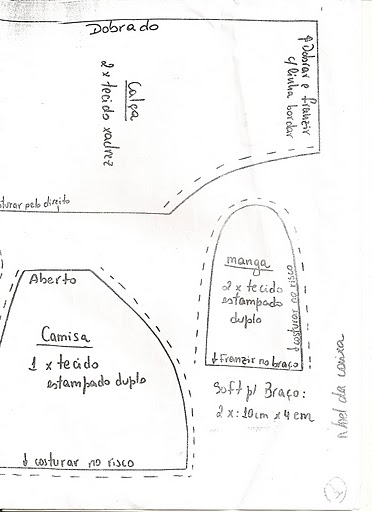 Dobrado
Calça
2 x tecido xadrez
↑ Dobrar e franzir
c/ linha bordar
turar pelo direito
Aberto
Camisa
1 x tecido
estampado duplo
↓ costurar no risco
manga
2 x tecido
estampado
duplo
↓ costurar no risco
↓ Franzir no braço
Soft p/ Braço:
2 x: 10 cm x 4 cm